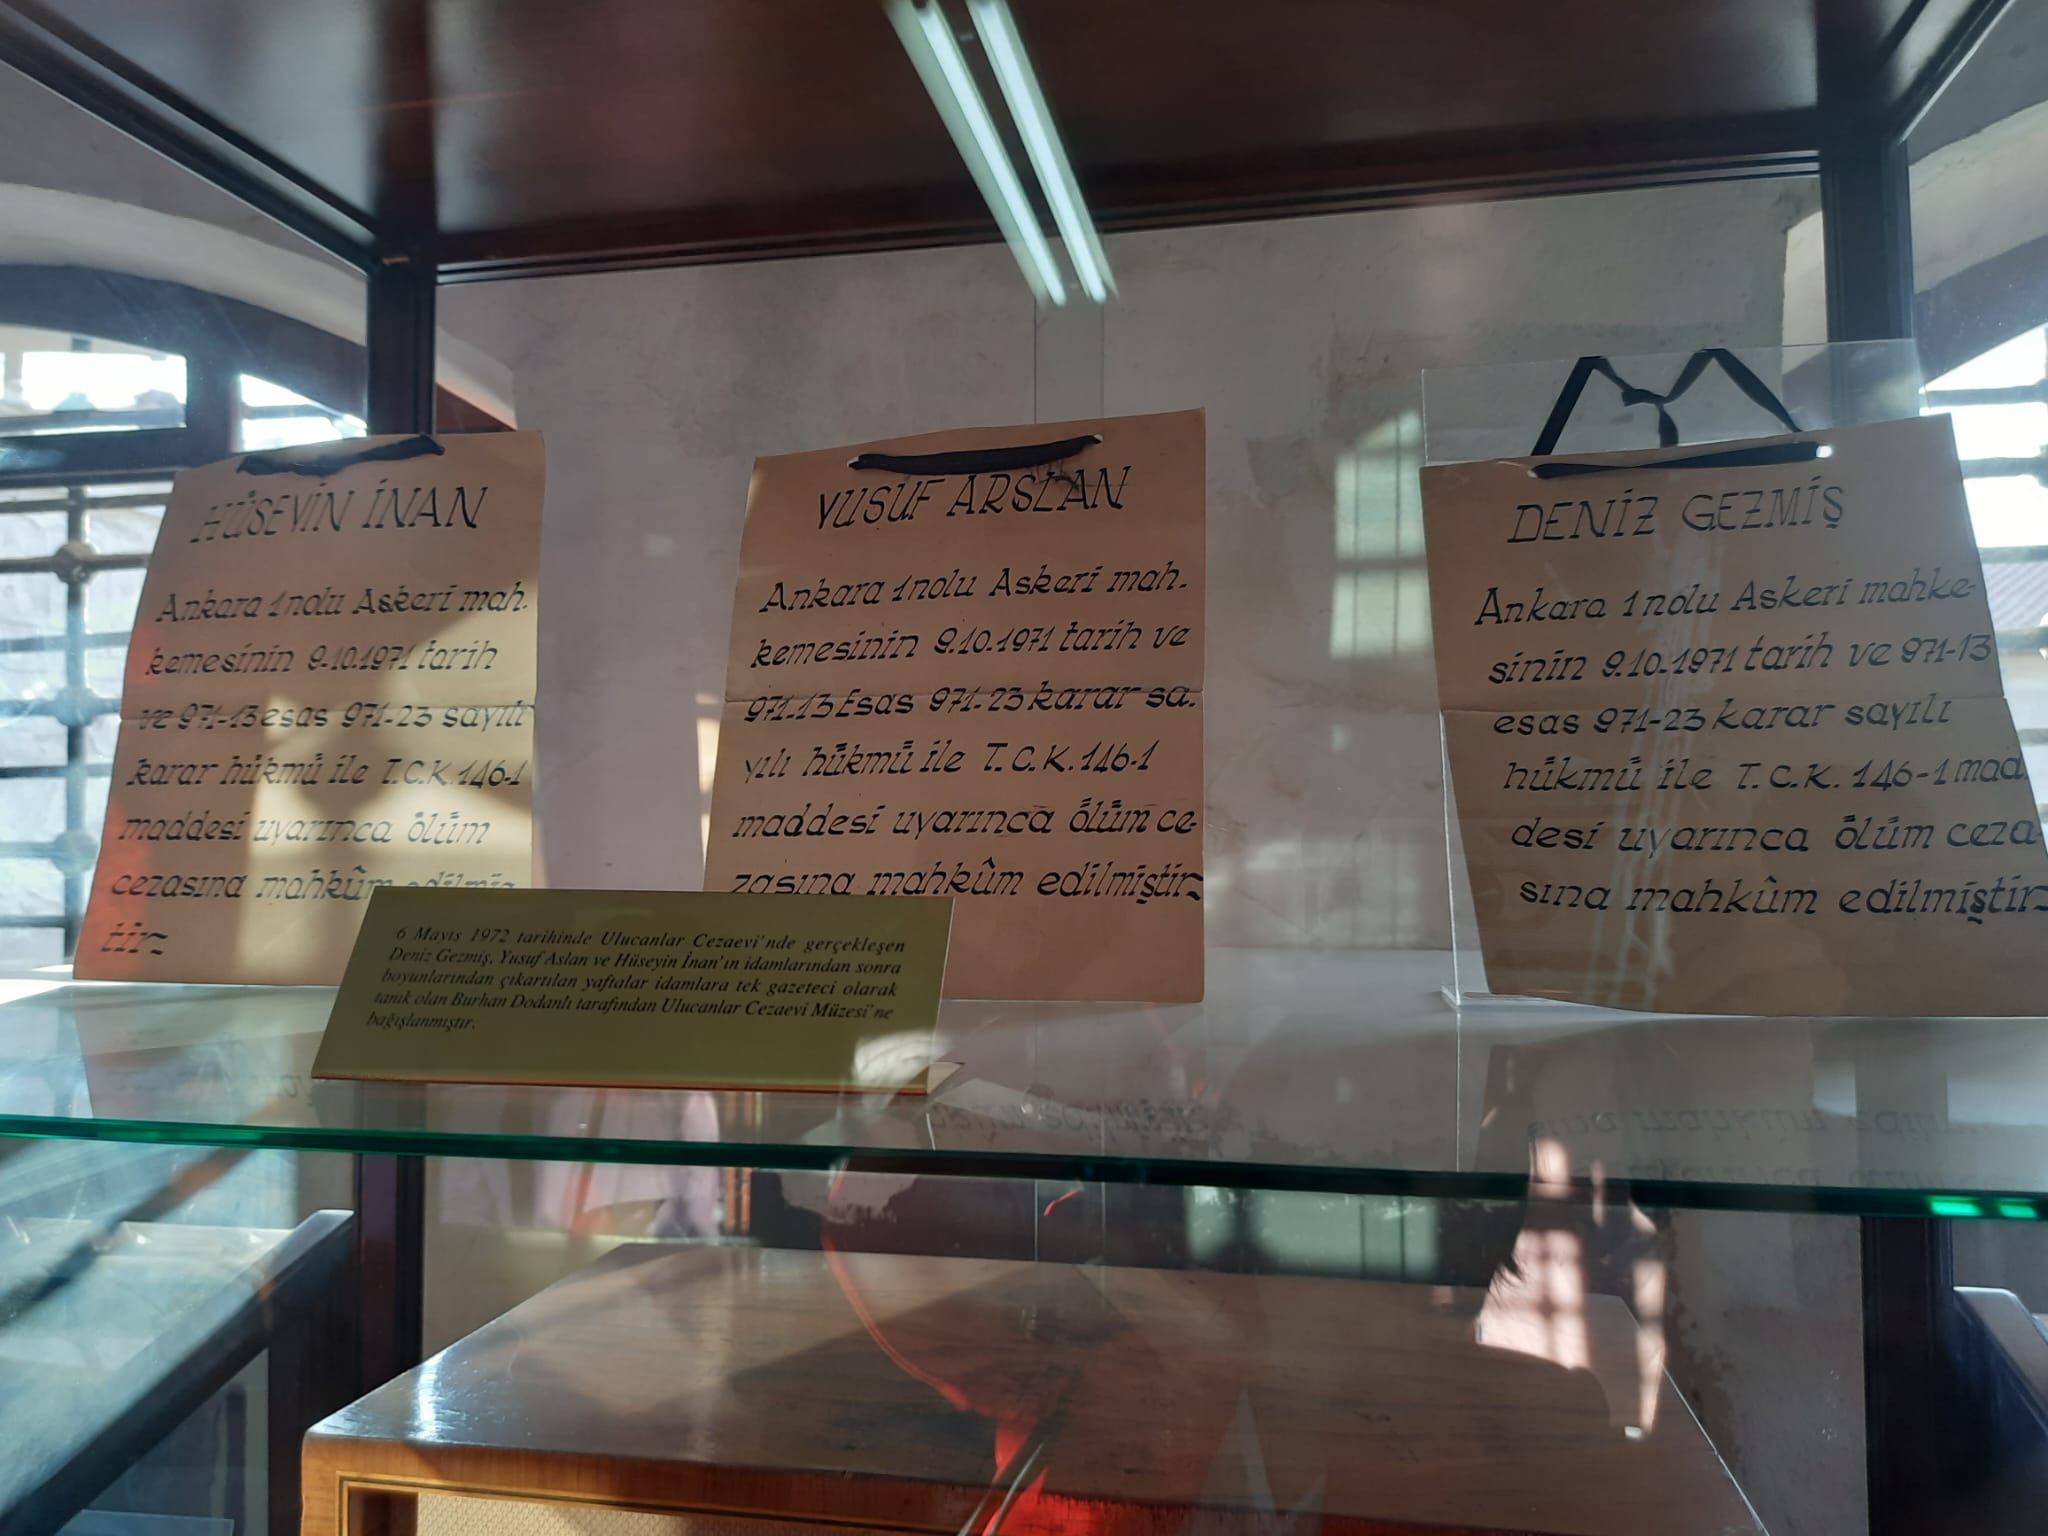 HÜSEYİN İNAN
Ankara 1 nolu Askeri mah.
kemesinin 9.10.1971 tarih
ve 971-13 esas 971-23 sayılı
karar hükmü ile T.C.K. 146-1
maddesi uyarınca ölüm
cezasına mahkûm edilmiş
tir~
YUSUF ARSLAN
Ankara 1 nolu Askeri mah.
kemesinin 9.10.1971 tarih ve
971.13 Esas 971.23 karar sa.
yılı hükmü ile T.C.K. 146-1
maddesi uyarınca ölüm ce-
zasına mahkûm edilmiştir~
DENİZ GEZMİŞ
Ankara 1 nolu Askeri mahke-
sinin 9.10.1971 tarih ve 971-13
esas 971-23 karar sayılı
hükmü ile T.C.K. 146-1 mad
desi uyarınca ölüm ceza-
sına mahkûm edilmiştir~
6 Mayıs 1972 tarihinde Ulucanlar Cezaevi'nde gerçekleşen
Deniz Gezmiş, Yusuf Aslan ve Hüseyin İnan'ın idamlarından sonra
boyunlarından çıkartılan yaftalar idamlara tek gazeteci olarak
tanık olan Burhan Dodanlı tarafından Ulucanlar Cezaevi Müzesi'ne
bağışlanmıştır.